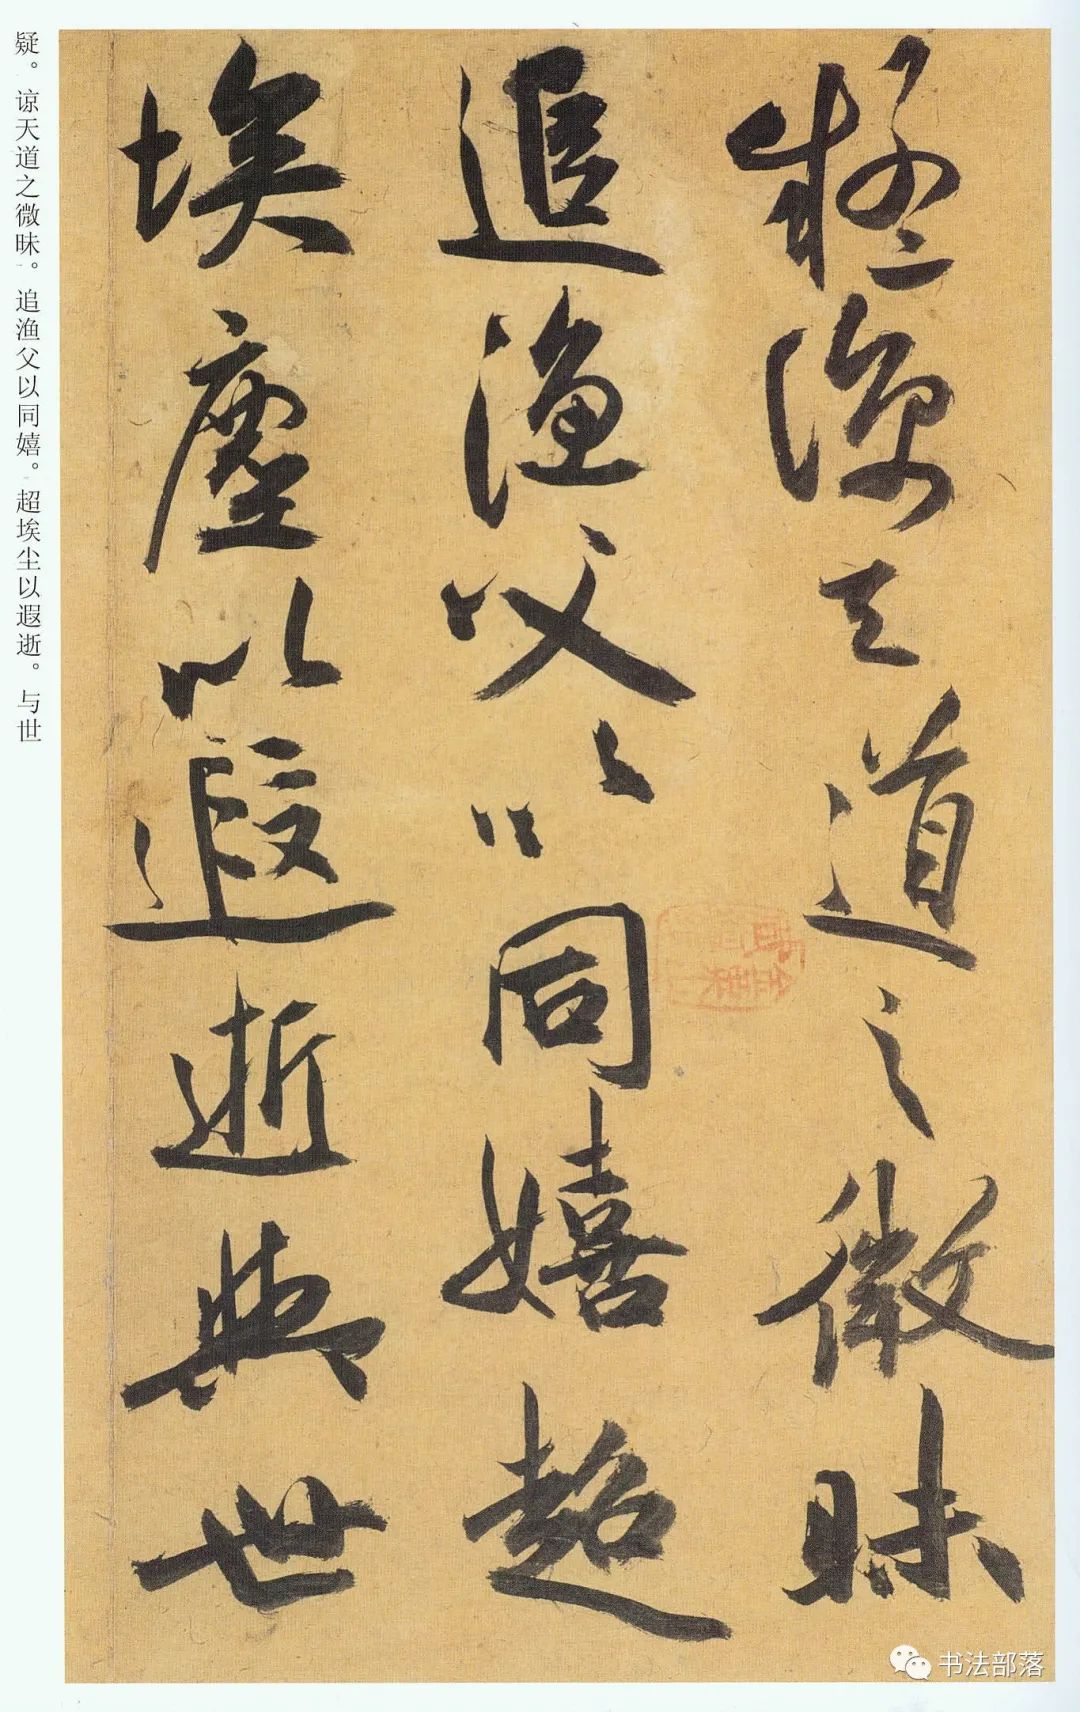 疑諒天道之微昧
追漁父以同嬉超
埃塵以遐逝與世
疑。谅天道之微昧。追渔父以同嬉。超埃尘以遐逝。与世
书法部落